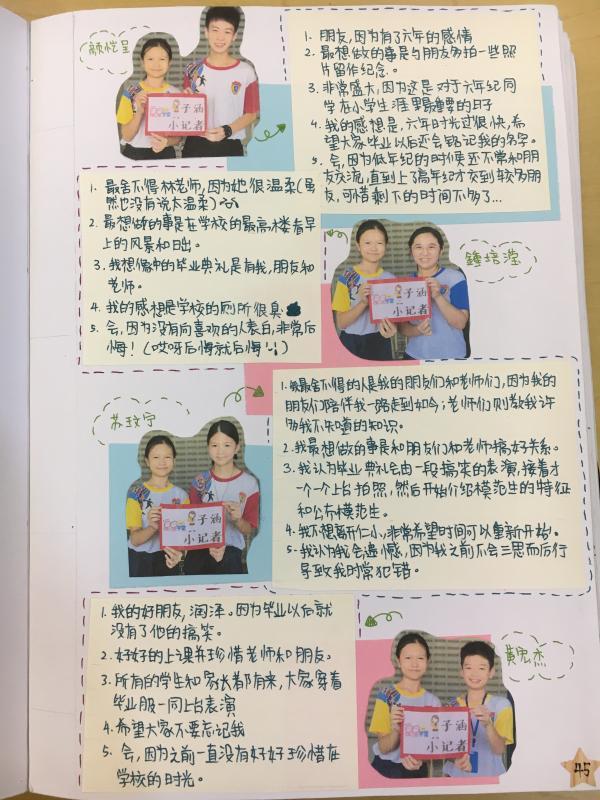 颜恺呈
子涵
小记者
1. 朋友,因为有了六年的感情
2. 最想做的事是与朋友多拍一些照
片留作纪念。
3. 非常盛大,因为这是对于六年纪同
学在小学生涯里最重要的日子
4. 我的感想是,六年时光过很快,希
望大家毕业以后还会铭记我的名字。
5. 会,因为低年纪的时候还不常和朋
友交流,直到上了高年纪才交到较多朋
友,可惜剩下的时间不多了...
1. 最舍不得林老师,因为她很温柔(虽
然也没有说太温柔)
2. 最想做的事是在学校的最高楼看早
上的风景和日出。
3. 我想像中的毕业典礼是有我,朋友和
老师。
4. 我的感想是学校的厕所很臭
5. 会,因为没有向喜欢的人表白,非常后
悔!(哎呀后悔就后悔!)
钟培滢
子涵
小记者
苏玟宁
子涵
小记者
1. 我最舍不得的人是我的朋友们和老师们,因为我的
朋友们陪伴我一路走到如今;老师们则教我许
多我不知道的知识。
2. 我最想做的事是和朋友们和老师搞好关系。
3. 我认为毕业典礼会由一段搞笑的表演,接着才
一个一个上台拍照,然后开始介绍模范生的特征
和公布模范生。
4. 我不想离开仁小,非常希望时间可以重新开始。
5. 我认为我会遗憾,因为我之前不会三思而后行
导致我时常犯错。
1. 我的好朋友,润泽。因为毕业以后就
没有了他的搞笑。
2. 好好的上课并珍惜老师和朋友。
3. 所有的学生和家长都有来,大家穿着
毕业服一同上台表演
4. 希望大家不要忘记我
5. 会,因为之前一直没有好好珍惜在
学校的时光。
黄宏杰
子涵
小记者
45